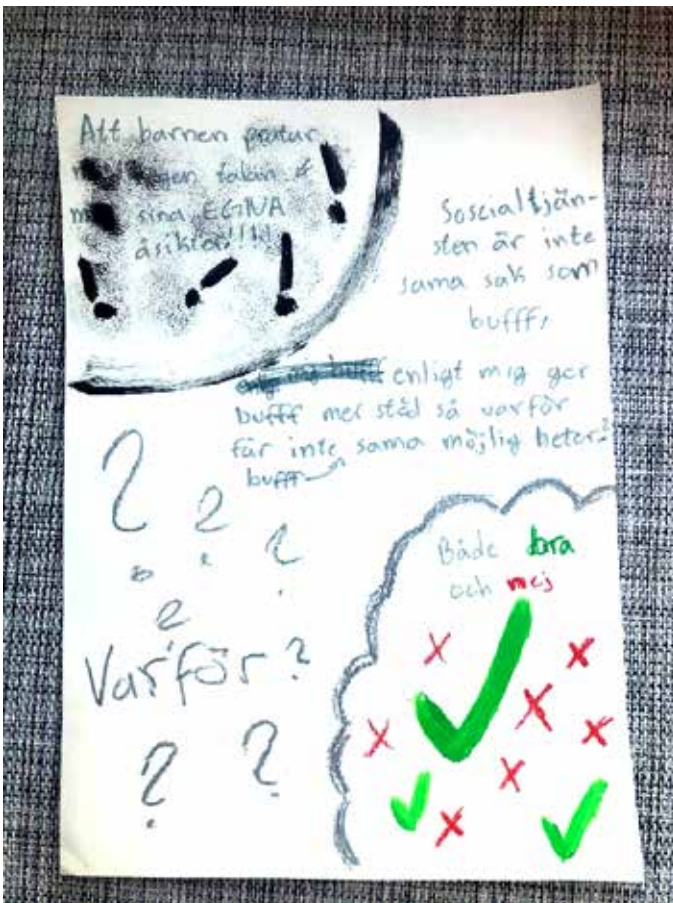 Att barnen pratar
egen talan &
sina EGNA
åsikter!!!!
Soscialtjän-
sten är inte
sama sak som
bufff,
enligt mig ger
bufff mer stöd så varför
får inte sama möjlig heter?
bufff
? ? ?
?
Varför?
? ?
Både bra
och mej